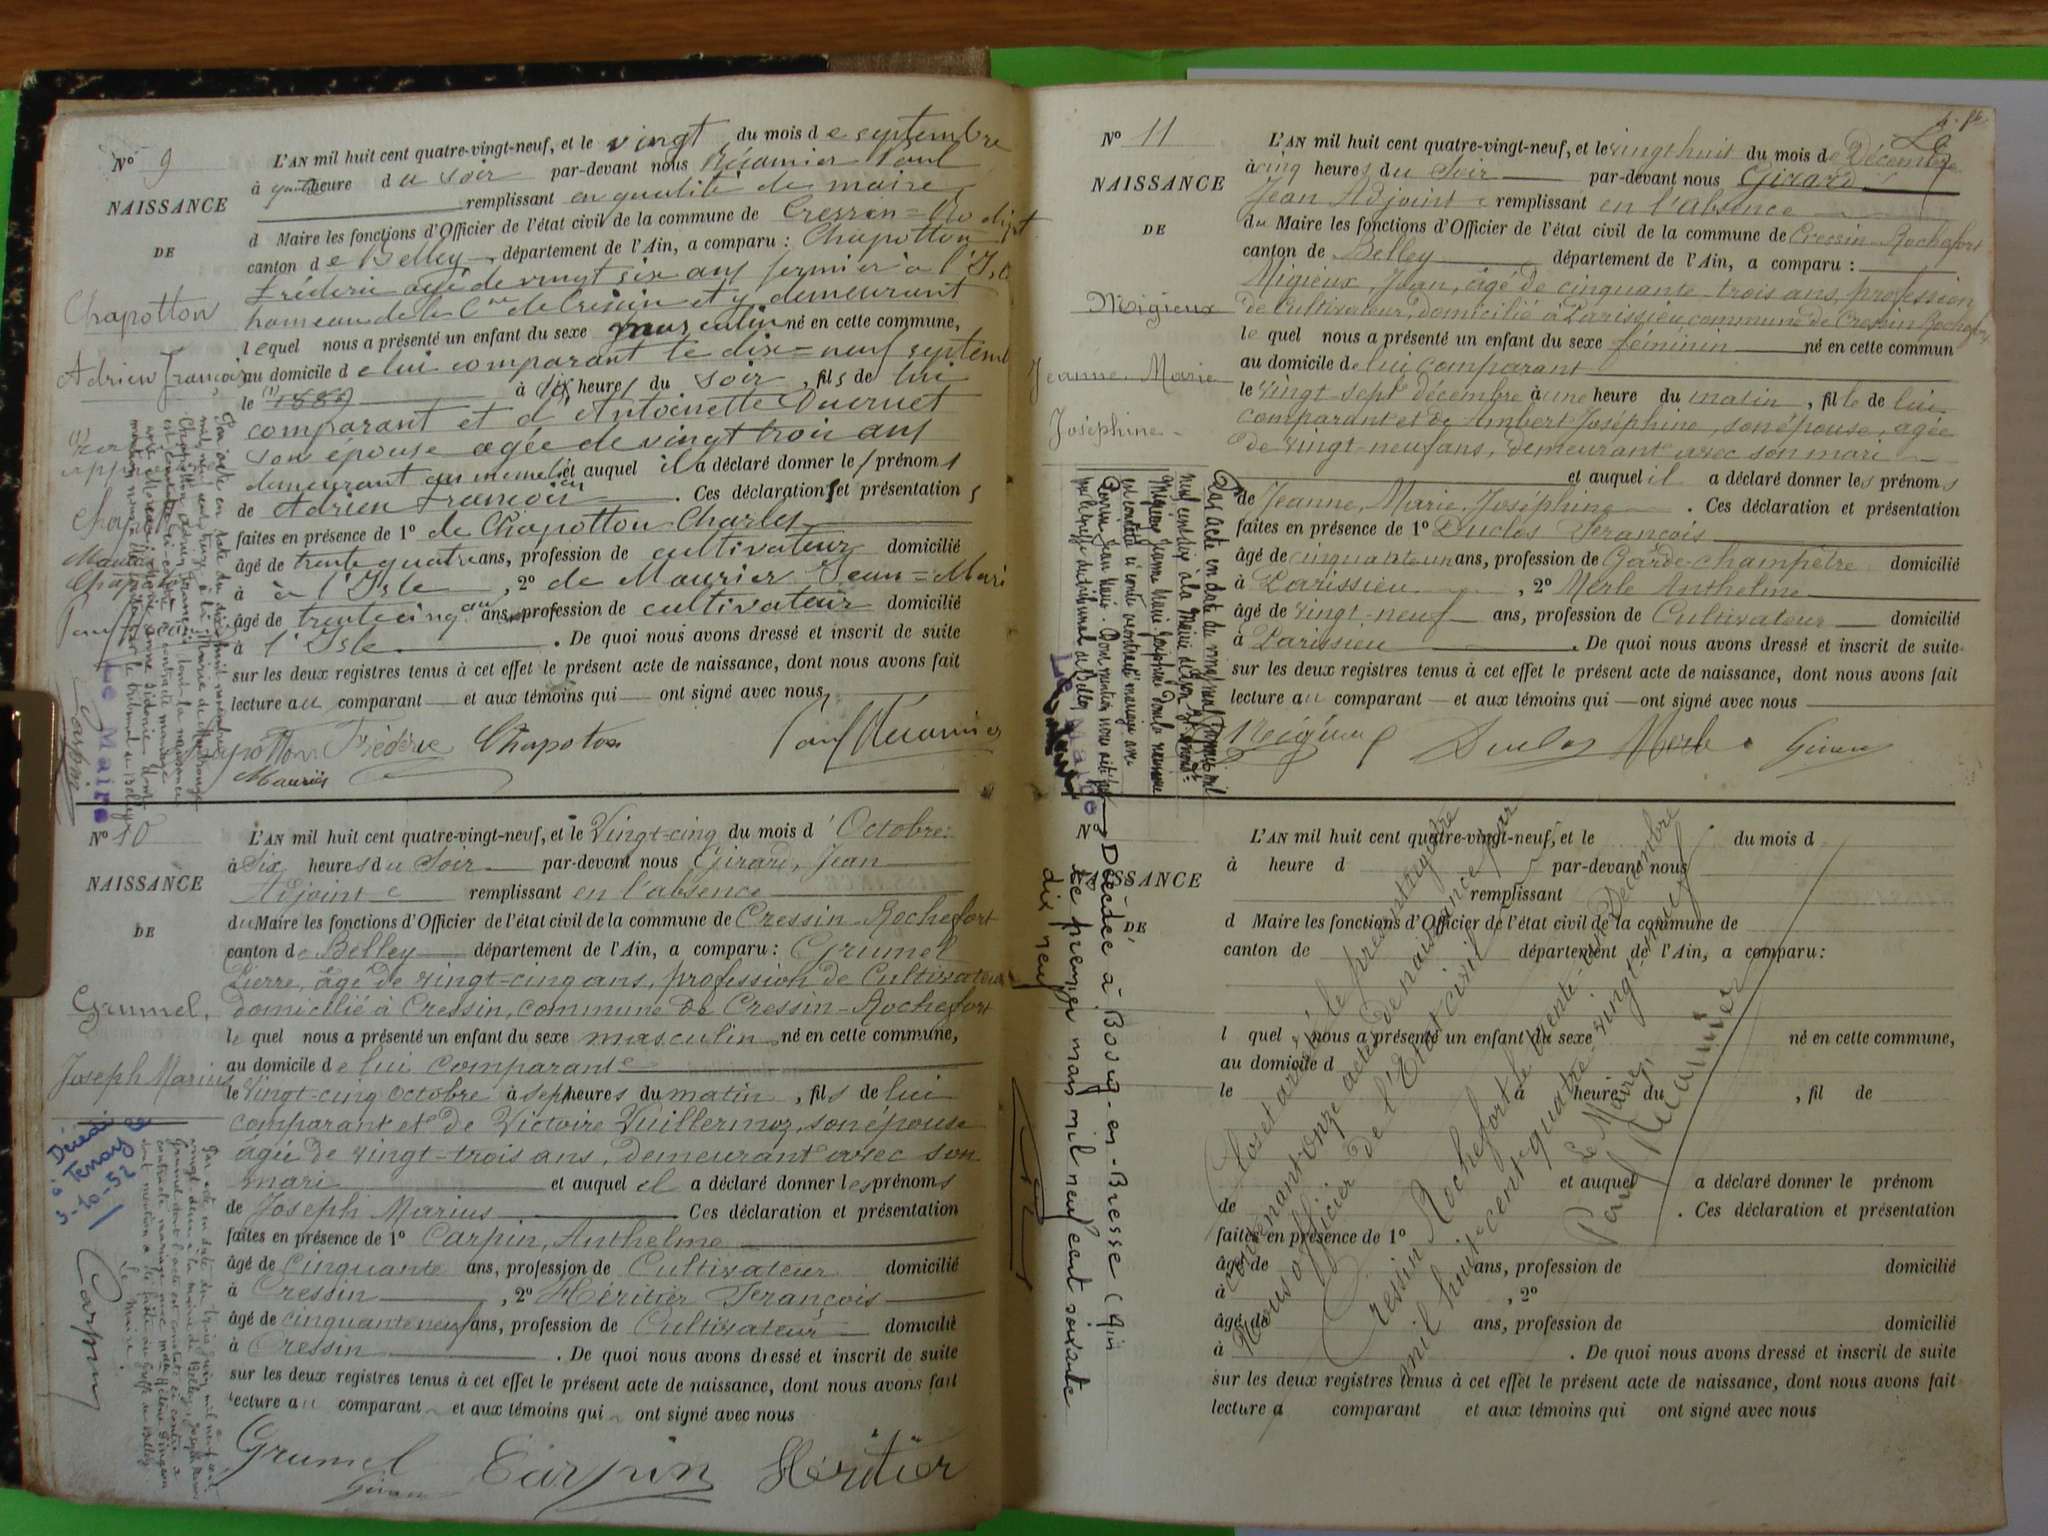 No 9
NAISSANCE
DE
Chapotton
Adrien François
L'AN mil huit cent quatre-vingt-neuf, et le vingt du mois de septembre
à heure du soir par-devant nous Récamier Paul
remplissant en qualité de maire
d Maire les fonctions d'Officier de l'état civil de la commune de Cressin=
canton de Belley, département de l'Ain, a comparu : Chapotton
Fréderic agé de vingt six ans fermier à l'Isle
hameau de la Cne de Cressin et y demeurant
lequel nous a présenté un enfant du sexe masculin né en cette commune,
au domicile de lui comparant le dix=neuf septemb
le 1889 à six heures du soir, fils de lui
comparant et d'Antoinette Ducruet
son épouse agée de vingt trois ans
demeurant au meme lieu et auquel il a déclaré donner les prénoms
de Adrien François. Ces déclaration et présentation
faites en présence de 1º de Chapotton Charles
âgé de trente quatre ans, profession de cultivateur domicilié
à à l'Isle, 2º de Maurier Jean=Mari
âgé de trente cinq ans, profession de cultivateur domicilié
à l'Isle. De quoi nous avons dressé et inscrit de suite
sur les deux registres tenus à cet effet le présent acte de naissance, dont nous avons fait
lecture au comparant et aux témoins qui ont signé avec nous
Chapotton Frédéric Chapoton Paul Récamier
Le Maire
No 10
NAISSANCE
DE
Grumel,
Joseph Marius
L'AN mil huit cent quatre-vingt-neuf, et le Vingt-cinq du mois d'Octobre
à Six heures du Soir par-devant nous Girard, Jean
Adjoint remplissant en l'absence
du Maire les fonctions d'Officier de l'état civil de la commune de Cressin-Rochefort
canton de Belley département de l'Ain, a comparu : Grumel
Pierre, âgé de vingt-cinq ans, profession de Cultivateur
domicilié à Cressin, commune de Cressin-Rochefort
le quel nous a présenté un enfant du sexe masculin né en cette commune,
au domicile de lui comparant
le vingt-cinq octobre à sept heures du matin, fils de lui
comparant et de Victoire Vuillermoz, son épouse
âgée de vingt-trois ans, demeurant avec son
mari et auquel il a déclaré donner les prénoms
de Joseph Marius Ces déclaration et présentation
faites en présence de 1º Carpin, Anthelme
âgé de Cinquante ans, profession de Cultivateur domicilié
à Cressin, 2º Héritier François
âgé de cinquante neuf ans, profession de Cultivateur domicilié
à Cressin. De quoi nous avons dressé et inscrit de suite
sur les deux registres tenus à cet effet le présent acte de naissance, dont nous avons fait
lecture au comparant et aux témoins qui ont signé avec nous
Grumel Carpin Héritier
Girard
Décédé
à Tenay
3-10-52
Le Maire.
Carpin
No 11
NAISSANCE
DE
Migieux
Jeanne Marie
Joséphine
L'AN mil huit cent quatre-vingt-neuf, et le vingt huit du mois de Décembre
à cinq heures du Soir par-devant nous Girard
Jean Adjoint remplissant en l'absence
du Maire les fonctions d'Officier de l'état civil de la commune de Cressin-Rochefort
canton de Belley département de l'Ain, a comparu :
Migieux, Jean, âgé de cinquante-trois ans, profession
de Cultivateur, domicilié à Parissieu commune de Cressin Rochefort
le quel nous a présenté un enfant du sexe féminin né en cette commun
au domicile de lui comparant
le vingt sept décembre à une heure du matin, fille de lui
comparant et de Ambert Joséphine, son épouse, agée
de vingt-neuf ans, demeurant avec son mari
et auquel il a déclaré donner les prénoms
de Jeanne, Marie Joséphine. Ces déclaration et présentation
faites en présence de 1º Duclos François
âgé de cinquante un ans, profession de Garde-champêtre domicilié
à Parissieu, 2º Merle Anthelme
âgé de vingt-neuf ans, profession de Cultivateur domicilié
à Parissieu. De quoi nous avons dressé et inscrit de suite
sur les deux registres tenus à cet effet le présent acte de naissance, dont nous avons fait
lecture au comparant et aux témoins qui ont signé avec nous
Duclos Merle Girard
Le Maire
Décédée à Bourg-en-Bresse (Ain
le premier mars mil neuf cent soixante
dix neuf
No
NAISSANCE
DE
L'AN mil huit cent quatre-vingt-neuf, et le du mois d
à heure d par-devant nous
remplissant
d Maire les fonctions d'Officier de l'état civil de la commune de
canton de département de l'Ain, a comparu :
l quel nous a présenté un enfant du sexe né en cette commune,
au domicile d
le à heure du, fil de
et auquel a déclaré donner le prénom
de. Ces déclaration et présentation
faites en présence de 1º
âgé de ans, profession de domicilié
à, 2º
âgé de ans, profession de domicilié
à. De quoi nous avons dressé et inscrit de suite
sur les deux registres tenus à cet effet le présent acte de naissance, dont nous avons fait
lecture a comparant et aux témoins qui ont signé avec nous
Clos et arrêté le présent registre
contenant onze actes de naissance par
Nous officier de l'Etat civil
Cressin Rochefort le trente-un Décembre
mil huit cent quatre-vingt-neuf
Le Maire
Paul Récamier